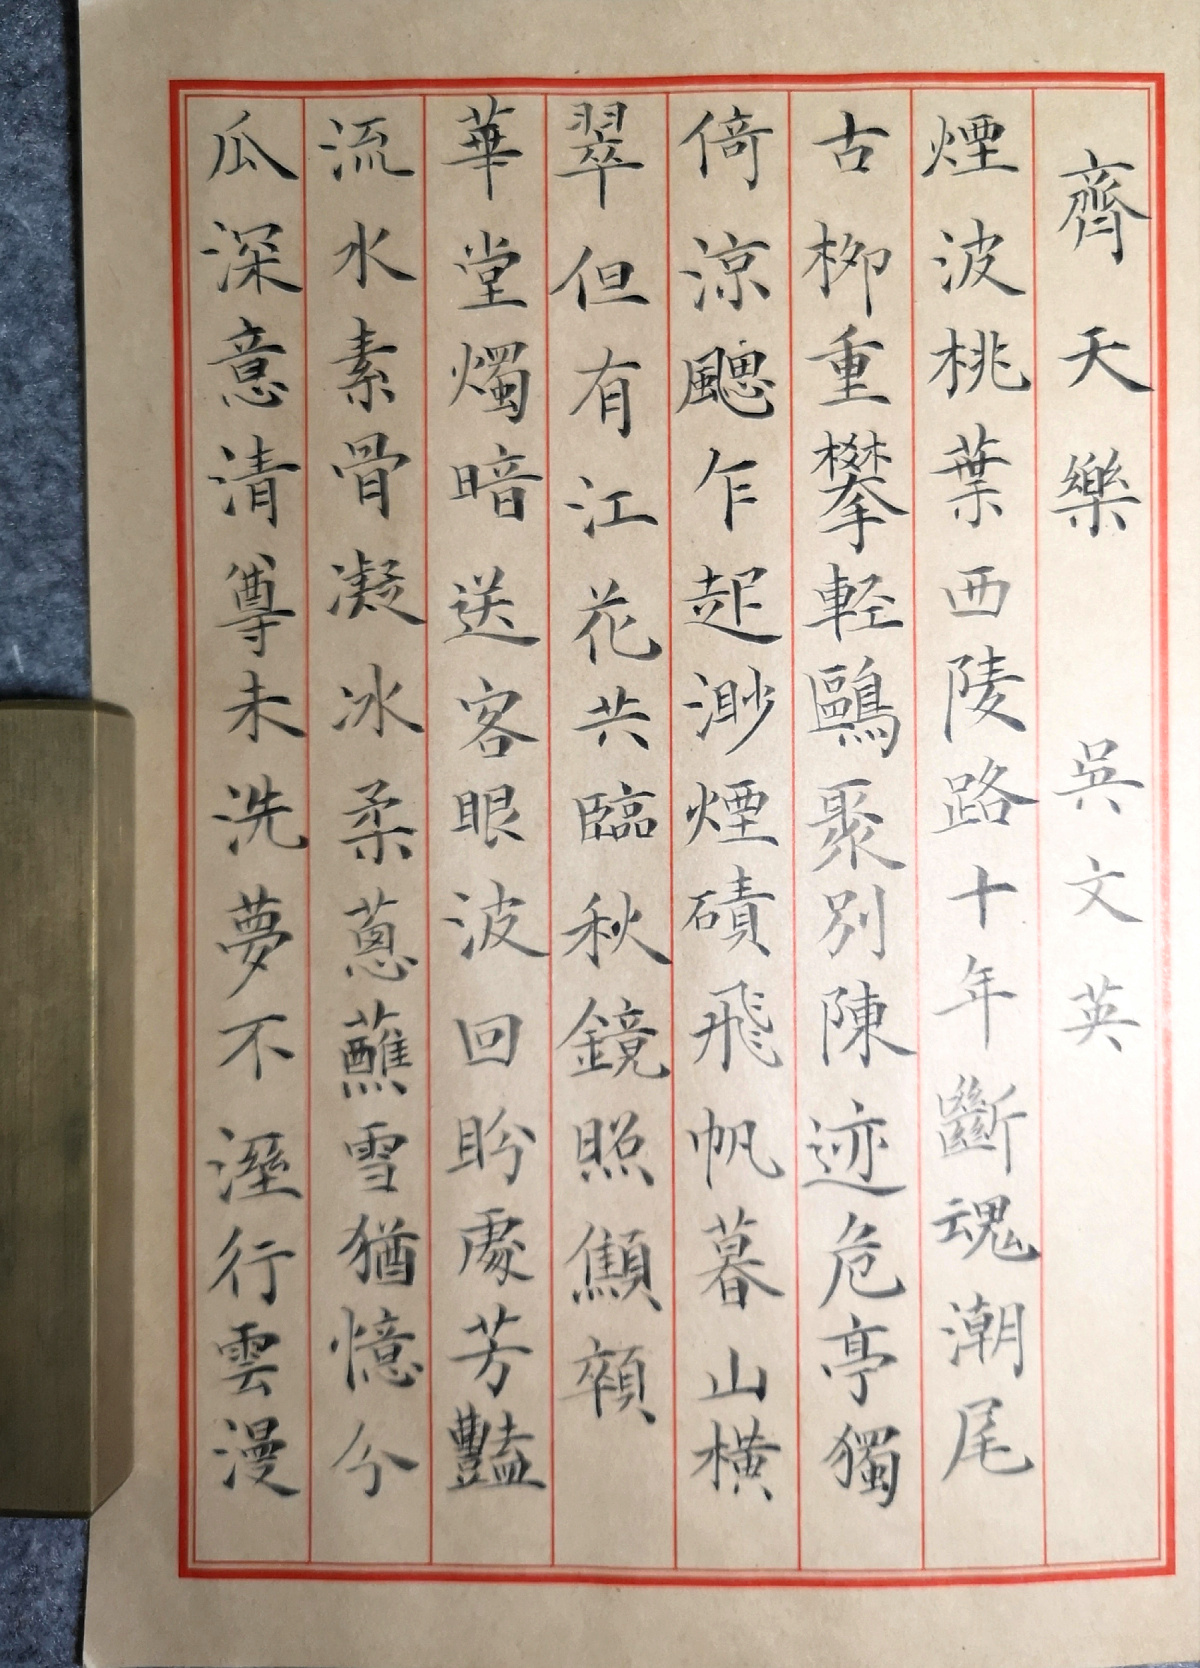 齊天樂 吳文英
煙波桃葉西陵路十年斷魂潮尾
古柳重攀輕鷗聚別陳迹危亭獨
倚涼颸乍起渺煙磧飛帆暮山橫
翠但有江花共臨秋鏡照顦顇
華堂燭暗送客眼波回盻處芳豔
流水素骨凝冰柔蔥蘸雪猶憶分
瓜深意清尊未洗夢不溼行雲漫